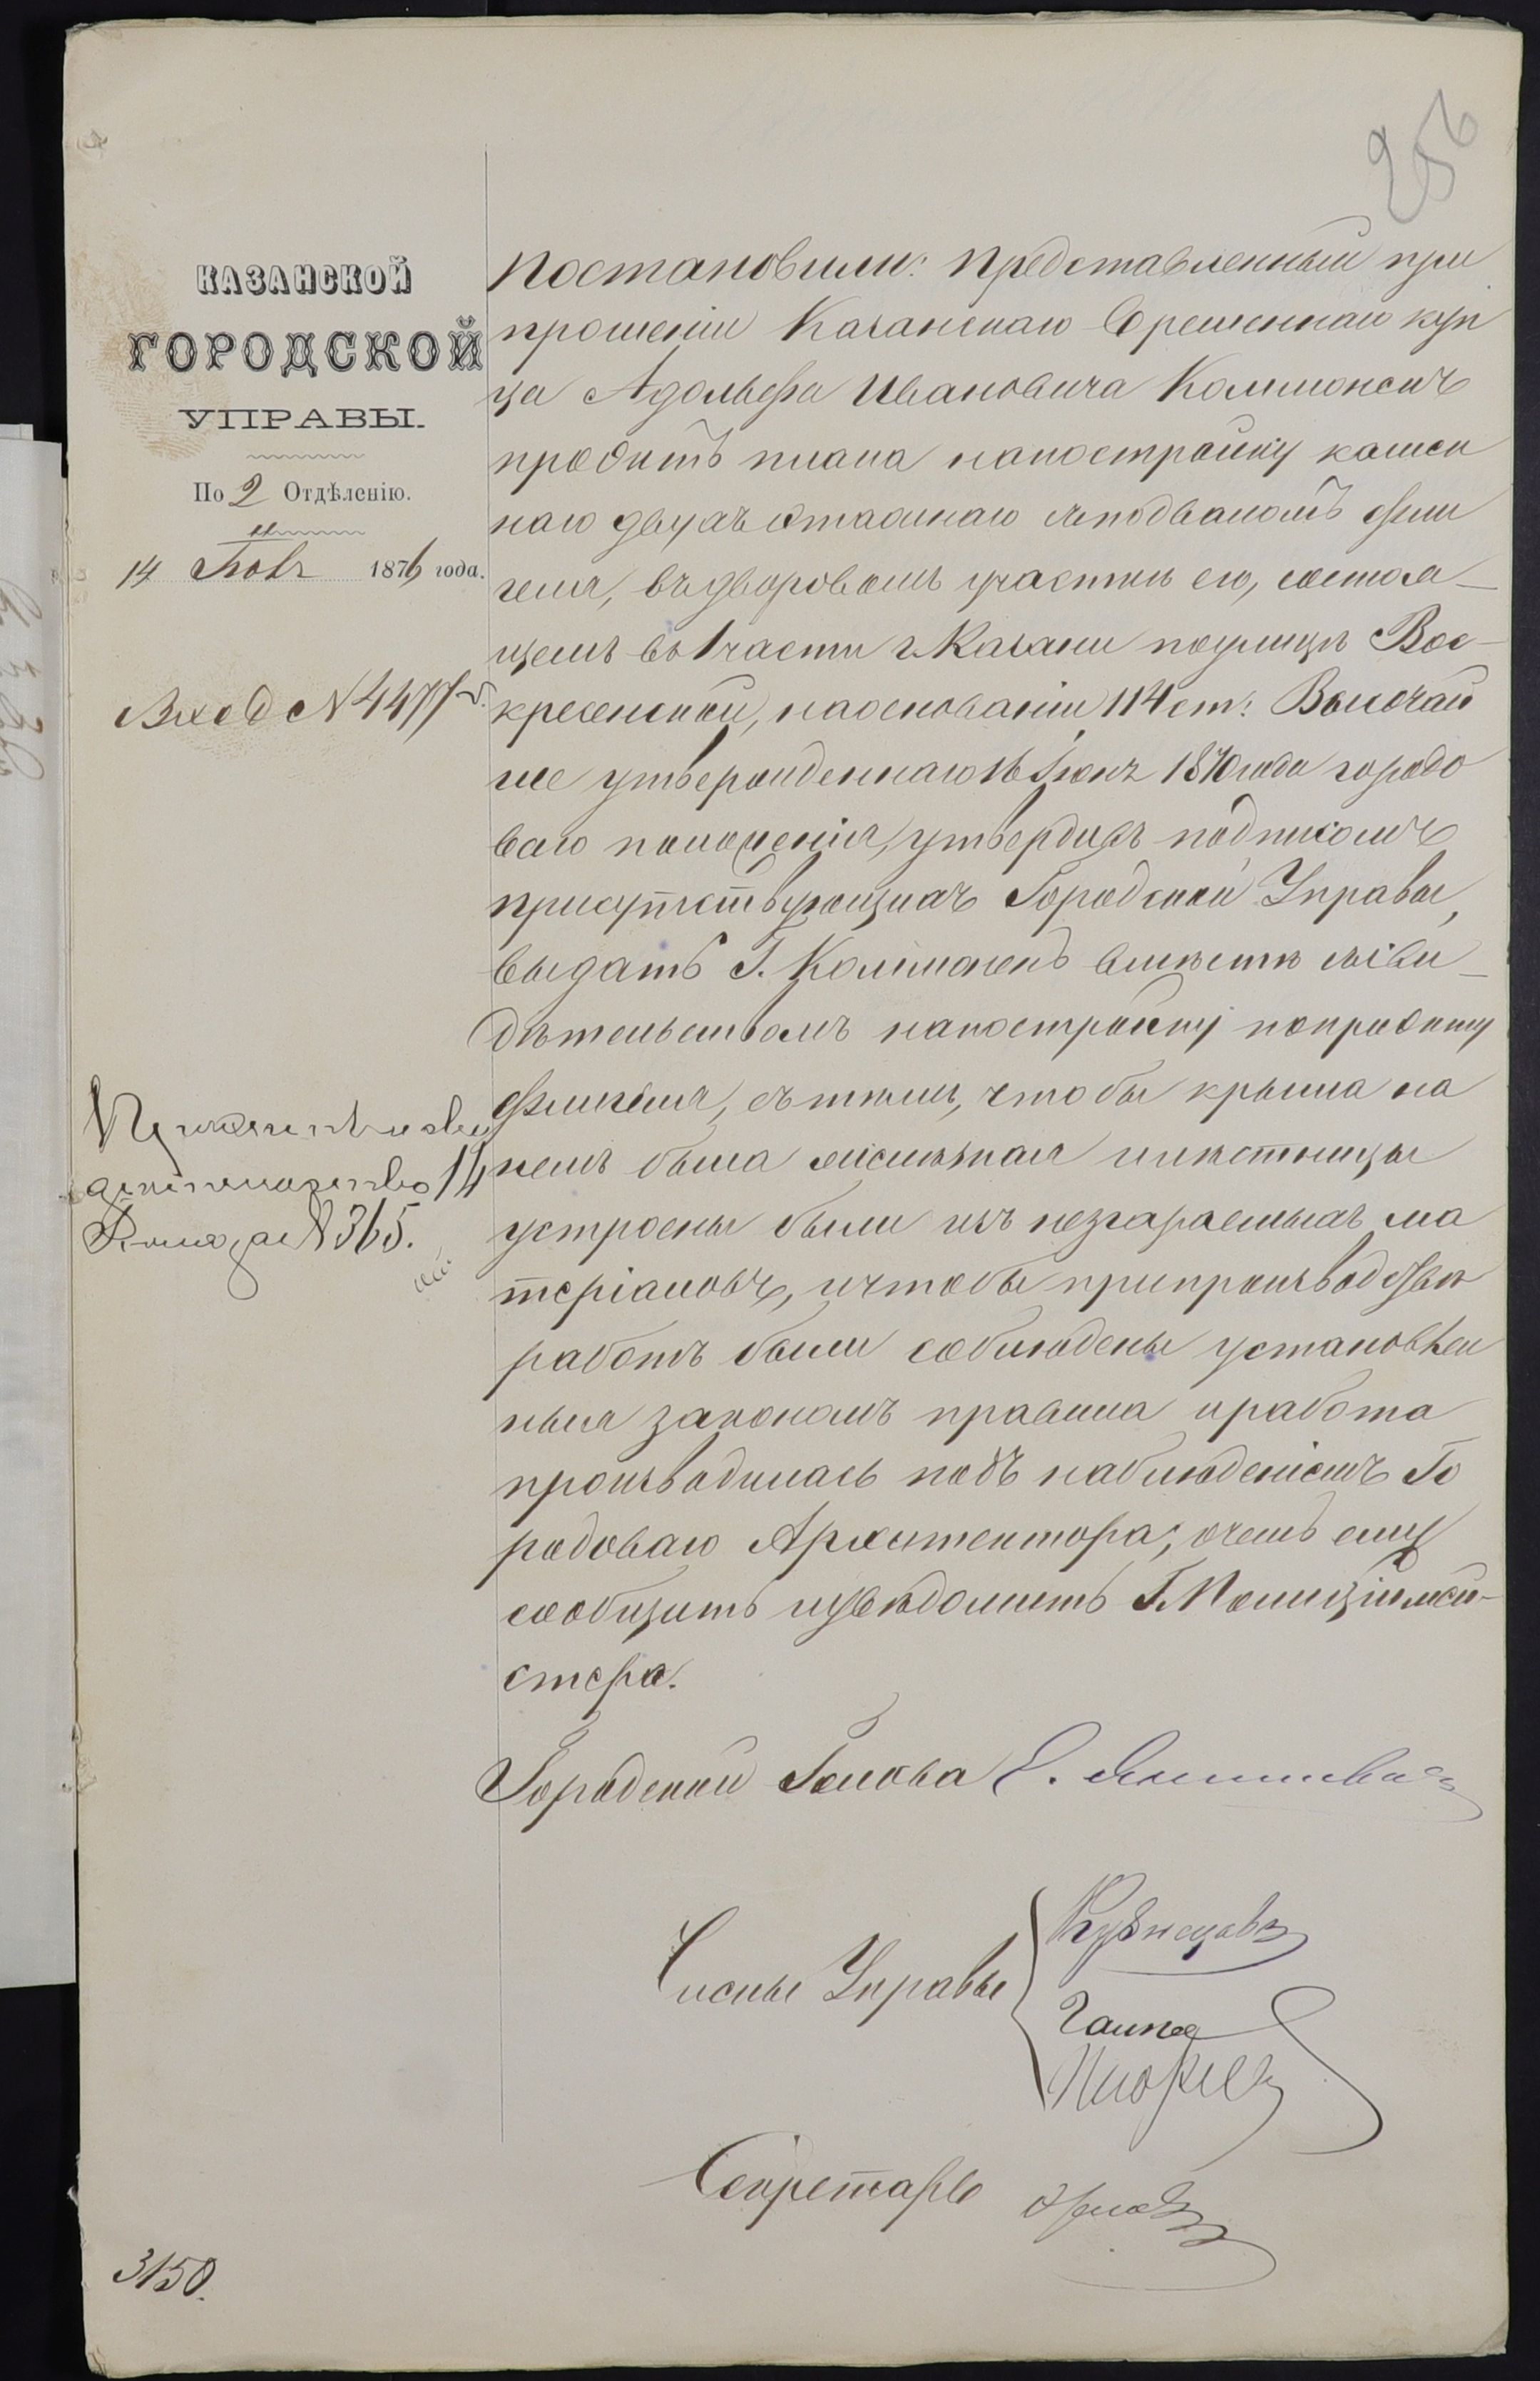 256
КАЗАНСКОЙ
ГОРОДСКОЙ
УПРАВЫ.
По 2 Отдѣленію.
14 1876 года.
Вход N 4477
14
N 365.
Постановили: представленный при
прошеніи Казанскаго Временнаго куп
ца Адольфа Ивановича Коммонсенъ
проэктъ плана на постройку камен
наго двухъ этажнаго съ подваломъ фли
геля, въ дворовомъ участкѣ его, состоя-
щемъ въ 1 части г. Казани по улицѣ Вос-
кресенской, на основаніи 114 ст: Высочай
ше утвержденнаго 16 Іюня 1870 года городо
ваго положенія, утвердивъ подписомъ
присутствующихъ Городской Управы,
выдать Г. Коммонсенъ вмѣстѣ съ сви-
дѣтельствомъ на постройку по проэкту
флигеля, съ тѣмъ, чтобы крыша на
немъ была желѣзная и лѣстницы
устроены были изъ незгараемыхъ ма
теріаловъ, и чтобы при производствѣ
работъ были соблюдены установлен
ныя закономъ правила и работа
производилась подъ наблюденіемъ Го
родоваго Архитектора; о чемъ ему
сообщить и увѣдомить Г. Полиціймей-
стера.
Городской Голова
Члены Управы
Кузнецовъ
Секретарь
3150.